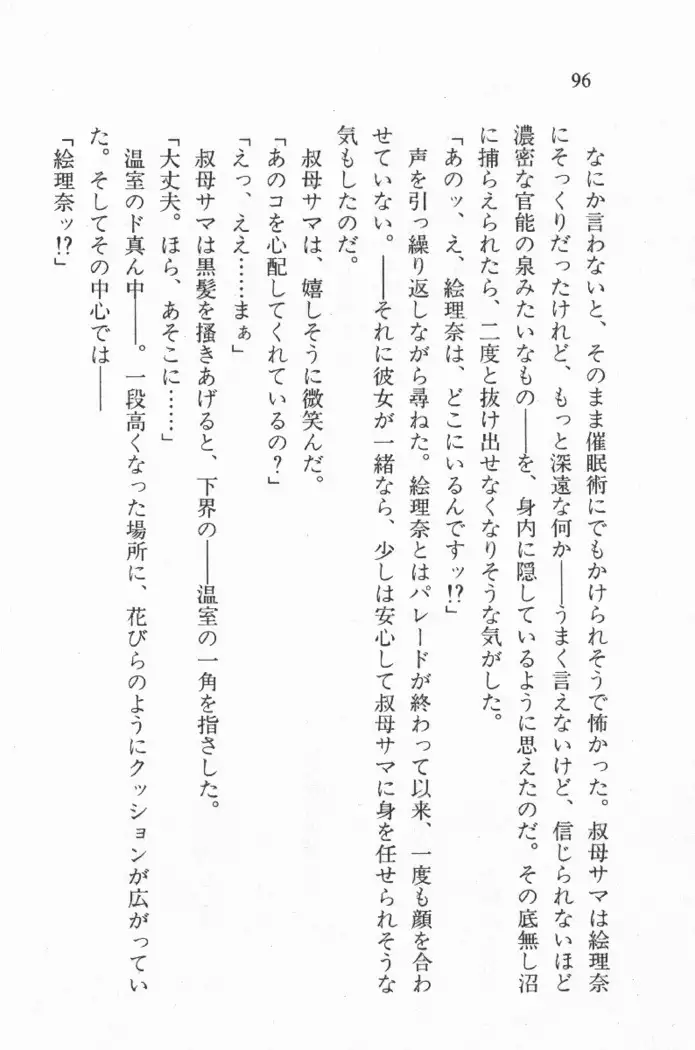 96
なにか言わないと、そのまま催眠術にでもかけられそうで怖かった。叔母サマは絵理奈
にそっくりだったけれど、もっと深遠な何か――うまく言えないけど、信じられないほど
濃密な官能の泉みたいなもの――を、身内に隠しているように思えたのだ。その底無し沼
に捕らえられたら、二度と抜け出せなくなりそうな気がした。
「あのッ、え、絵理奈は、どこにいるんですッ!?」
声を引っ繰り返しながら尋ねた。絵理奈とはパレードが終わって以来、一度も顔を合わ
せていない。――それに彼女が一緒なら、少しは安心して叔母サマに身を任せられそうな
気もしたのだ。
叔母サマは、嬉しそうに微笑んだ。
「あのコを心配してくれているの?」
「えっ、ええ……まぁ」
叔母サマは黒髪を掻きあげると、下界の――温室の一角を指さした。
「大丈夫。ほら、あそこに……」
温室のド真ん中――。一段高くなった場所に、花びらのようにクッションが広がってい
た。そしてその中心では――
「絵理奈ッ!?」